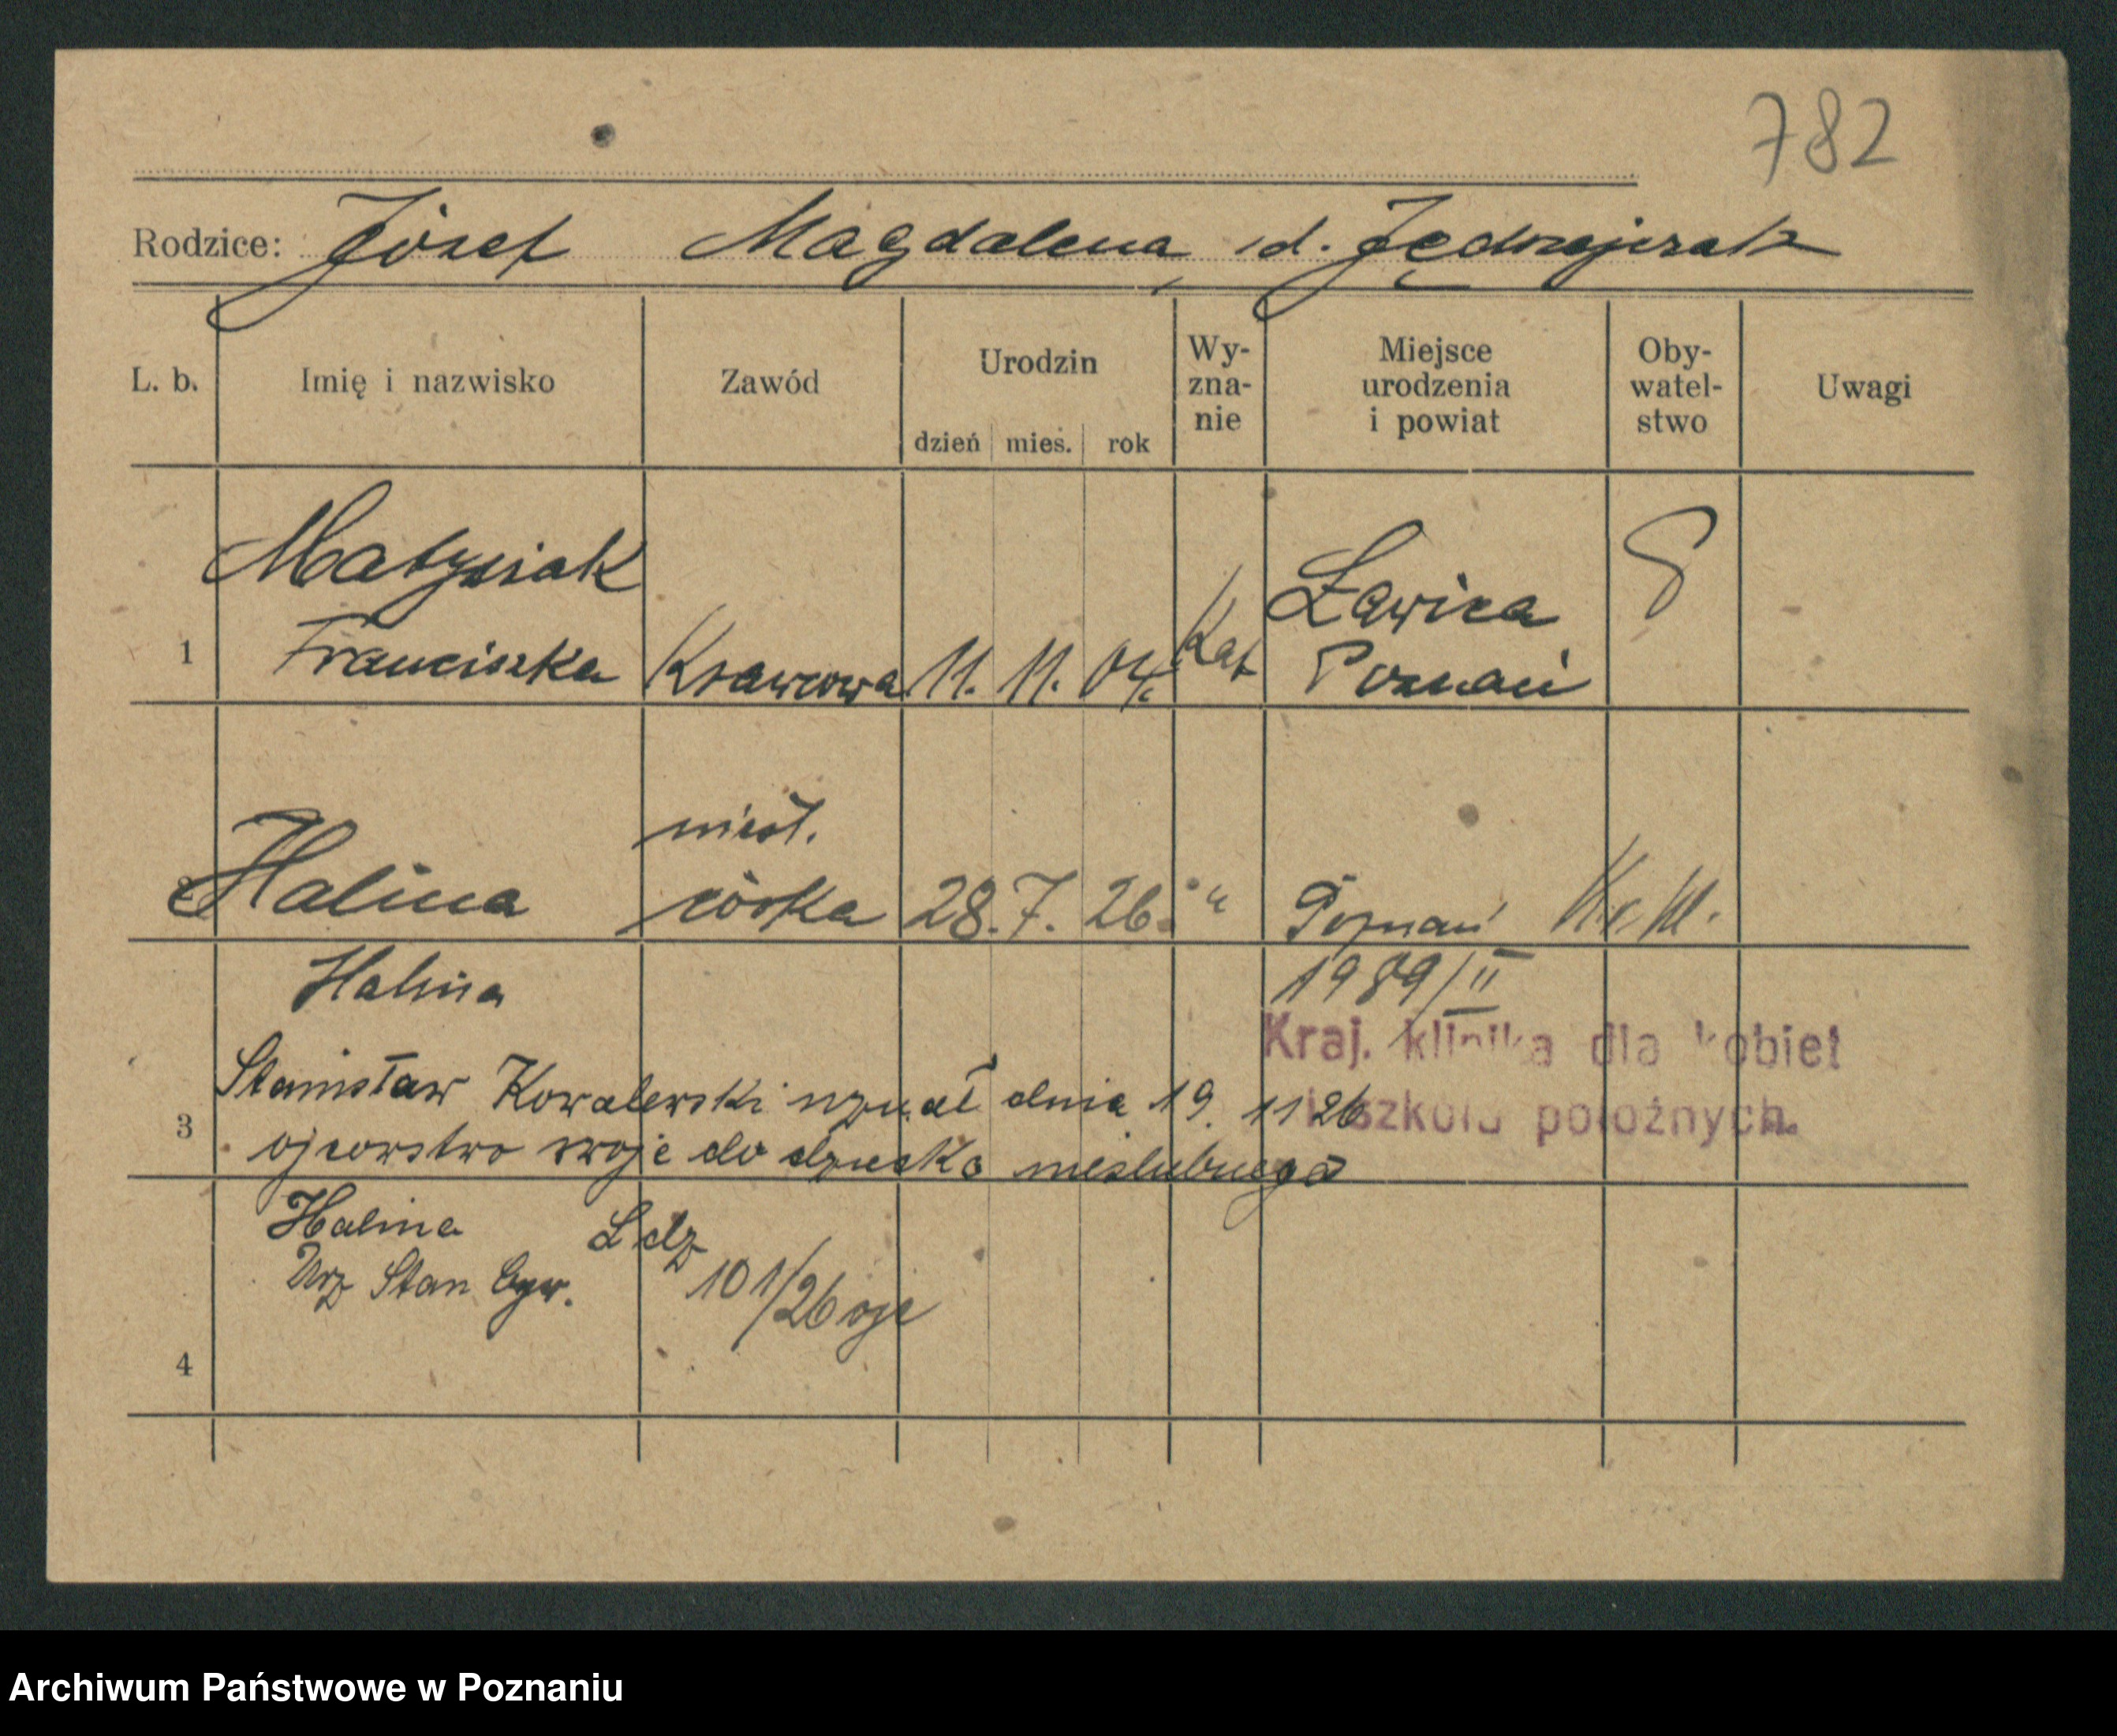 782
Rodzice: Józef Magdalena, d. Jędrzejczak
L. b. Imię i nazwisko Zawód Urodzin dzień mies. rok Wy-zna-nie Miejsce urodzenia i powiat Oby-watel-stwo Uwagi
Matysiak Ławica
1 Franciszka Krawcowa 11. 11. 04. Kat Poznań
nieśl.
2 Halina córka 28. 7. 26. " Poznań
Halina 1989/II
Kraj. klinika dla kobiet
i szkoła położnych.
Stanisław Kowalewski uznał dnia 19. 11 26
3 ojcowstwo swoje do dziecka nieslubnego
Halina L dz
Urz Stan Cyw. 101/26 oje
4
Archiwum Państwowe w Poznaniu